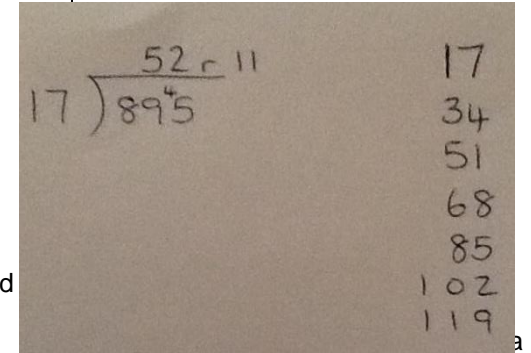 52 r 11
17 ) 89⁴5
17
34
51
68
85
102
119
d
a